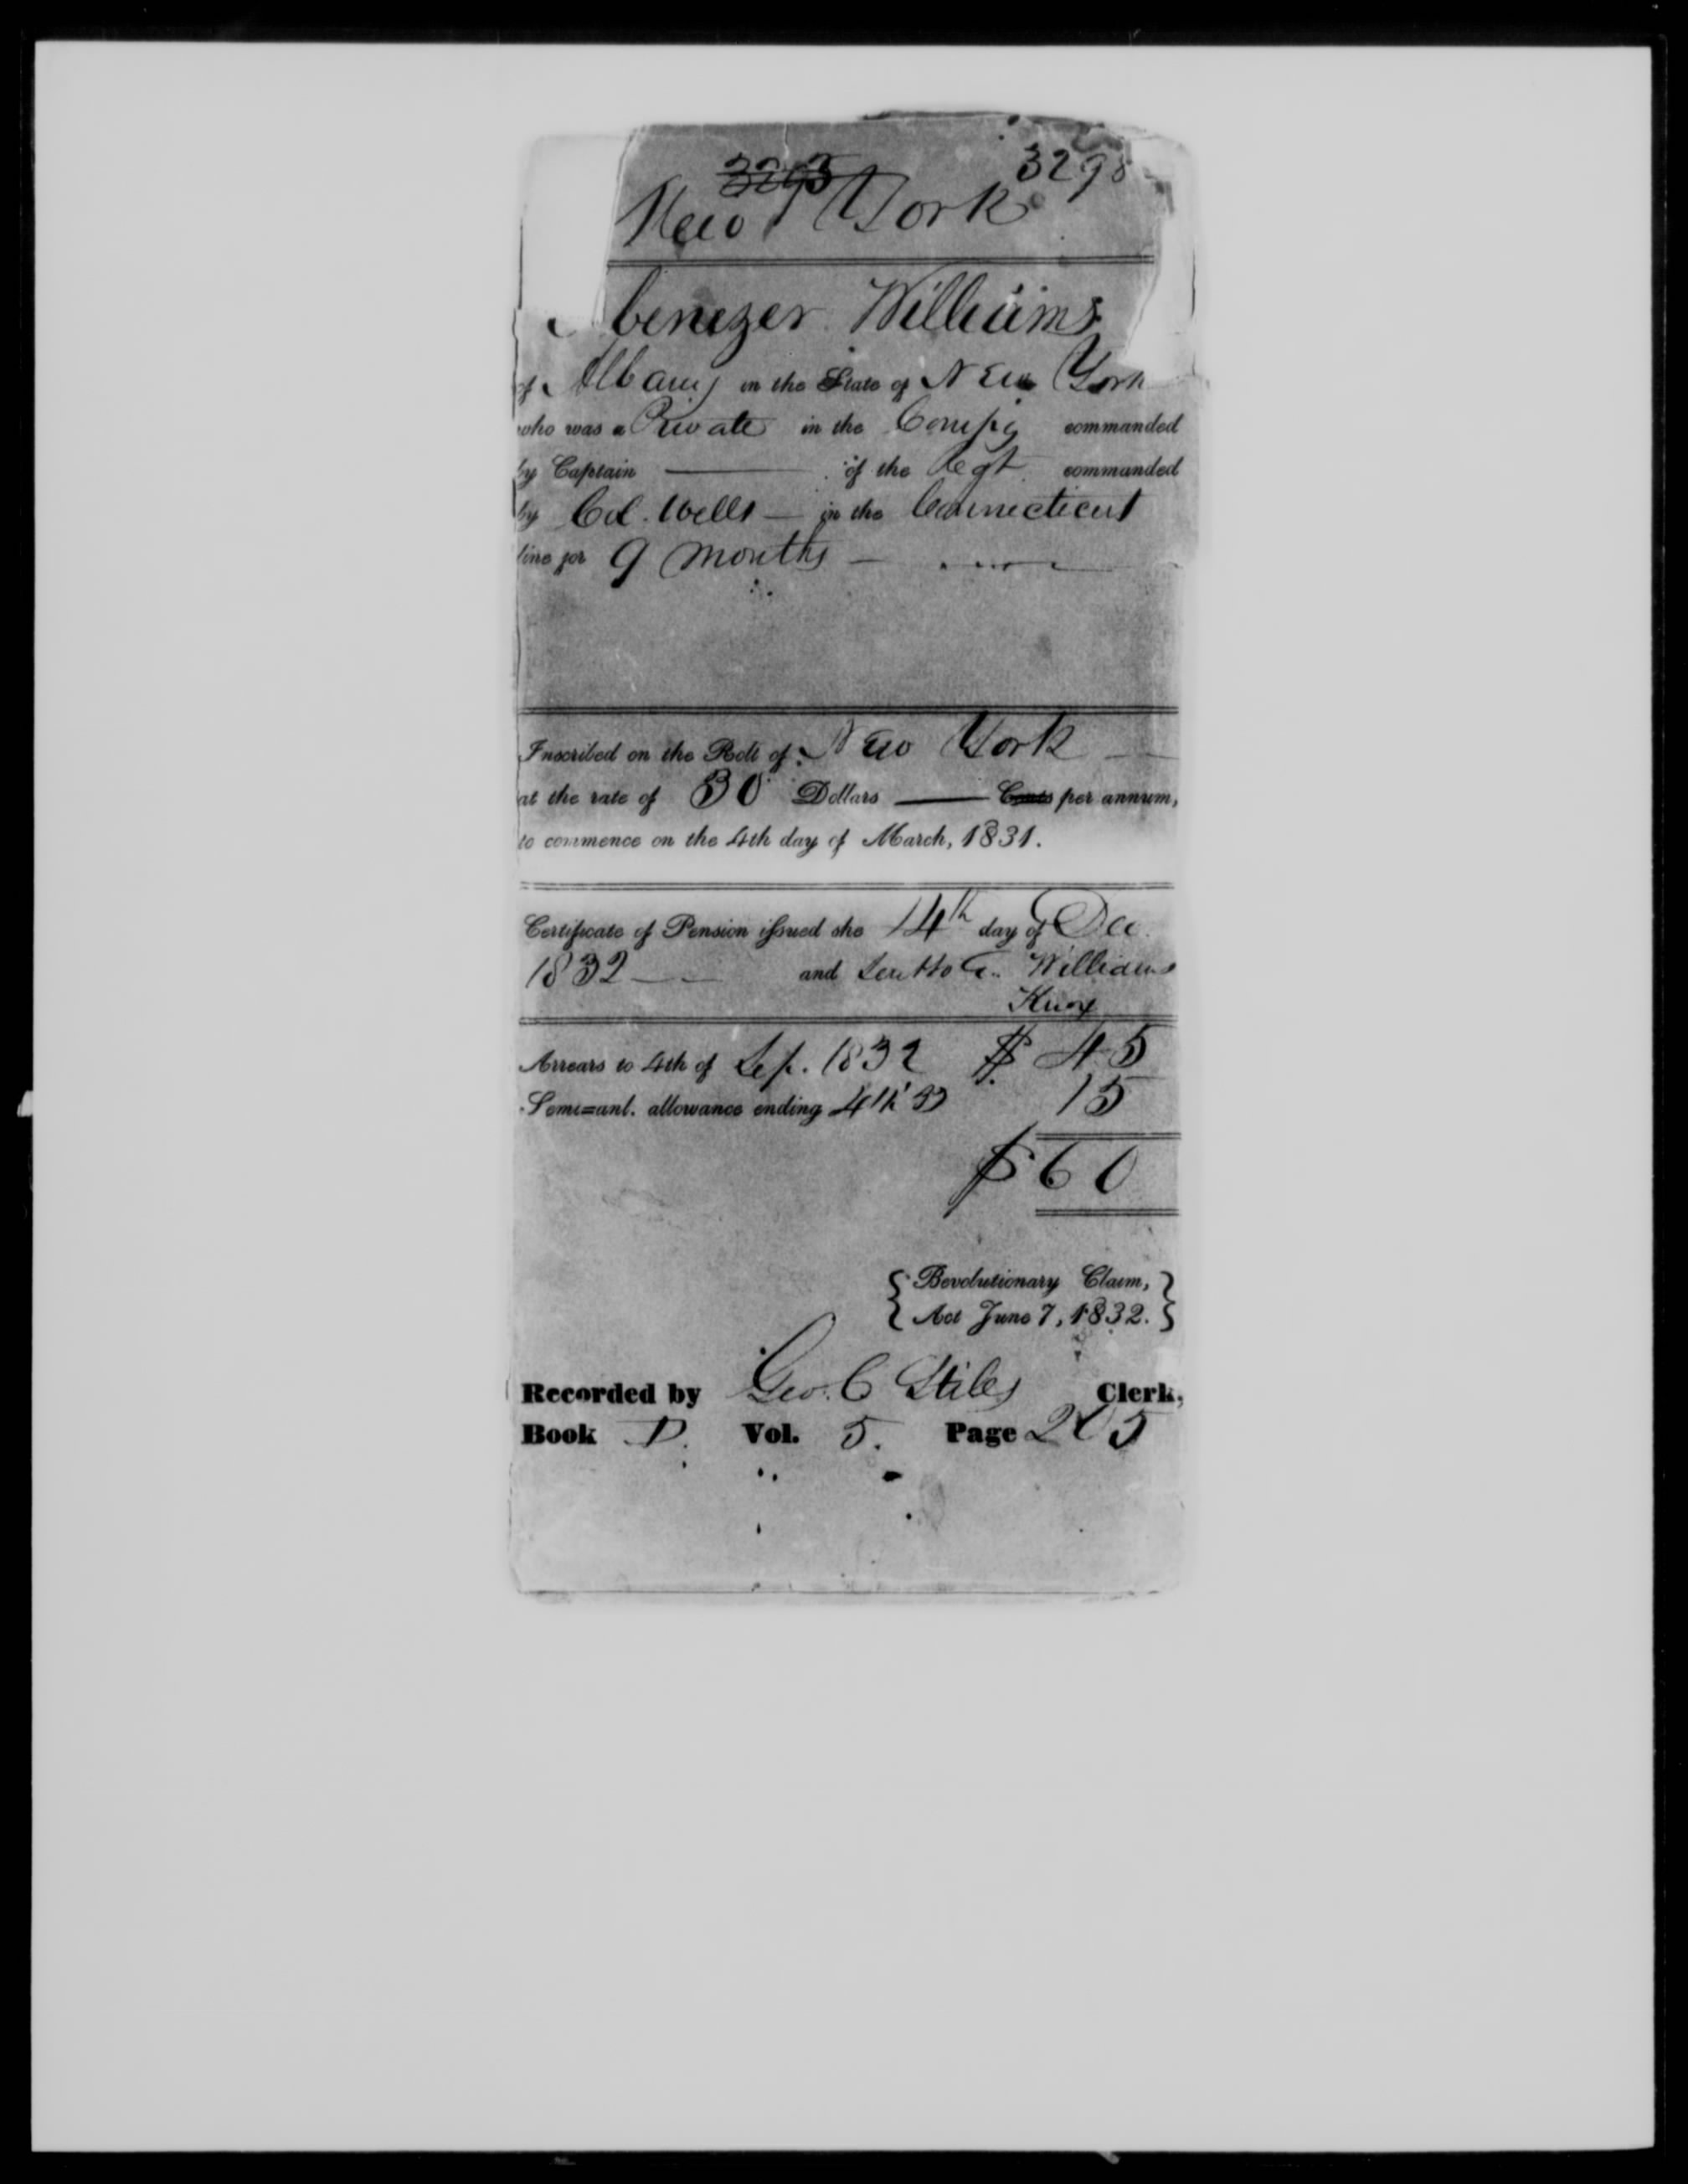 3298
New York
Ebenezer Williams
of Albany in the State of New York
who was a Private in the Compy commanded
by Captain ——— of the Regt commanded
by Col. Wells — in the Connecticut
line for 9 months —
Inscribed on the Roll of New York —
at the rate of 30 Dollars —— Cents per annum,
to commence on the 4th day of March, 1831.
Certificate of Pension issued the 14th day of Dec.
1832 — and sent to E. Williams
Knox
Arrears to 4th of Sep. 1832 $ 45
Semi-anl. allowance ending 4th 15
$60
{ Revolutionary Claim,
Act June 7, 1832. }
Recorded by Geo. C Stiles Clerk,
Book D. Vol. 5. Page 205